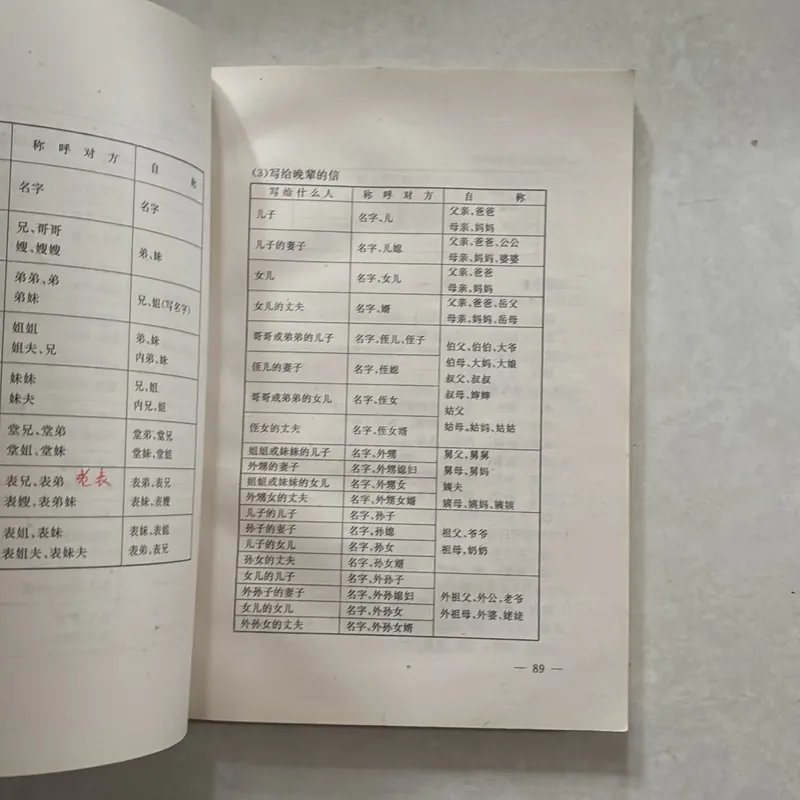 称呼对方 自称
名字 名字
兄、哥哥
嫂、嫂嫂 弟、妹
弟弟、弟
弟妹 兄、姐(写名字)
姐姐 弟、妹
姐夫、兄 内弟、妹
妹妹 兄、姐
妹夫 内兄、姐
堂兄、堂弟 堂弟、堂兄
堂姐、堂妹 堂妹、堂姐
表兄、表弟 老表 表弟、表兄
表嫂、表弟妹 表妹、表嫂
表姐、表妹 表妹、表姐
表姐夫、表妹夫 表弟、表兄
(3)写给晚辈的信
写给什么人 称呼对方 自称
儿子 名字、儿 父亲、爸爸
母亲、妈妈
儿子的妻子 名字、儿媳 父亲、爸爸、公公
母亲、妈妈、婆婆
女儿 名字、女儿 父亲、爸爸
母亲、妈妈
女儿的丈夫 名字、婿 父亲、爸爸、岳父
母亲、妈妈、岳母
哥哥或弟弟的儿子 名字、侄儿、侄子 伯父、伯伯、大爷
伯母、大妈、大娘
侄儿的妻子 名字、侄媳 叔父、叔叔
叔母、婶婶
哥哥或弟弟的女儿 名字、侄女 姑父
侄女的丈夫 名字、侄女婿 姑母、姑妈、姑姑
姐姐或妹妹的儿子 名字、外甥 舅父、舅舅
外甥的妻子 名字、外甥媳妇 舅母、舅妈
姐姐或妹妹的女儿 名字、外甥女 姨夫
外甥女的丈夫 名字、外甥女婿 姨母、姨妈、姨姨
儿子的儿子 名字、孙子
孙子的妻子 名字、孙媳 祖父、爷爷
儿子的女儿 名字、孙女 祖母、奶奶
孙女的丈夫 名字、孙女婿
女儿的儿子 名字、外孙子
外孙子的妻子 名字、外孙媳妇 外祖父、外公、老爷
女儿的女儿 名字、外孙女 外祖母、外婆、姥姥
外孙女的丈夫 名字、外孙女婿
— 89 —